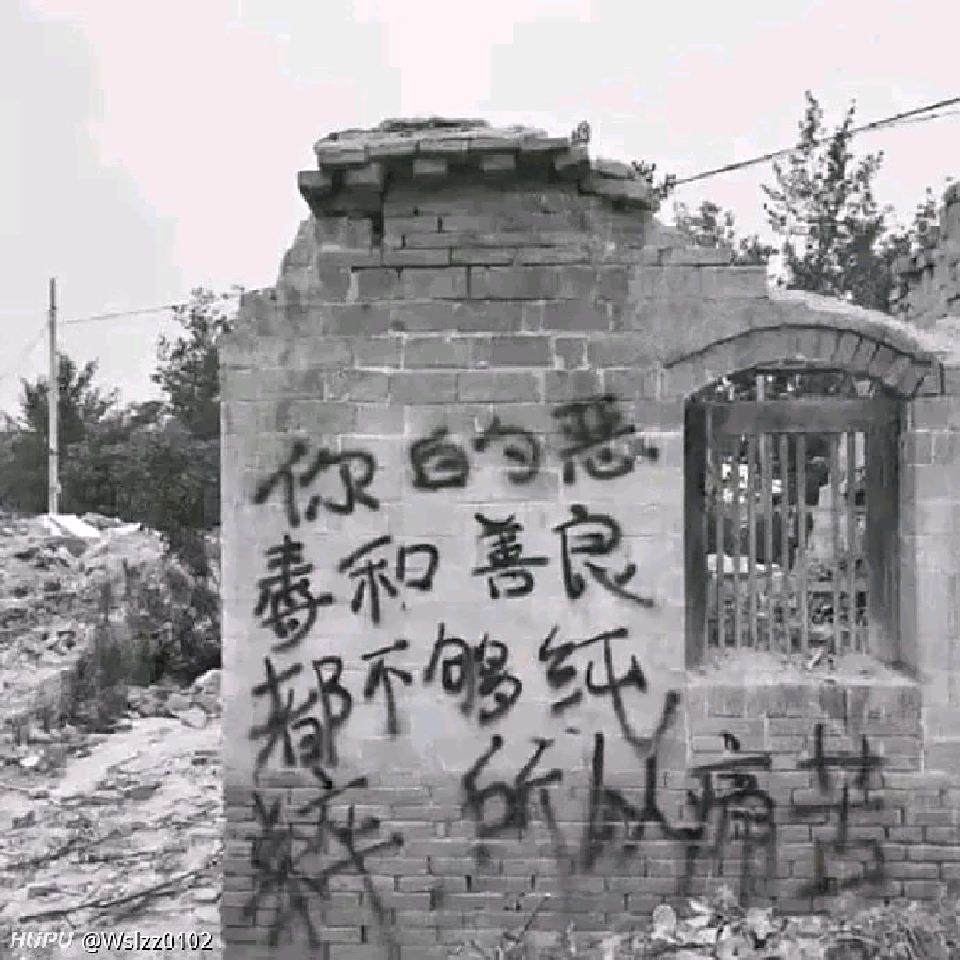 你的恶
毒和善良
都不够纯
粹 所以痛苦
HUPU @Wslzz0102